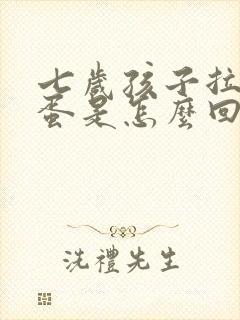 七歲孩子拉
蛋是怎麼回
洗禮先生